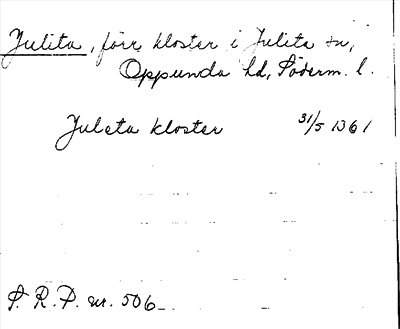 Julita, förr kloster i Julita sn,
Oppunda hd, Söderm. l.
Juleta kloster 31/5 1361
S. R. P. nr. 506